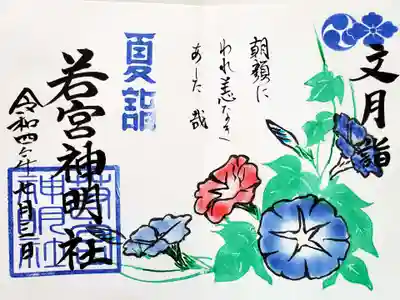 文月詣
朝顔に
われ恙なき
あした哉
夏詣
若宮神明社
令和四年七月三一日
若宮
神明社